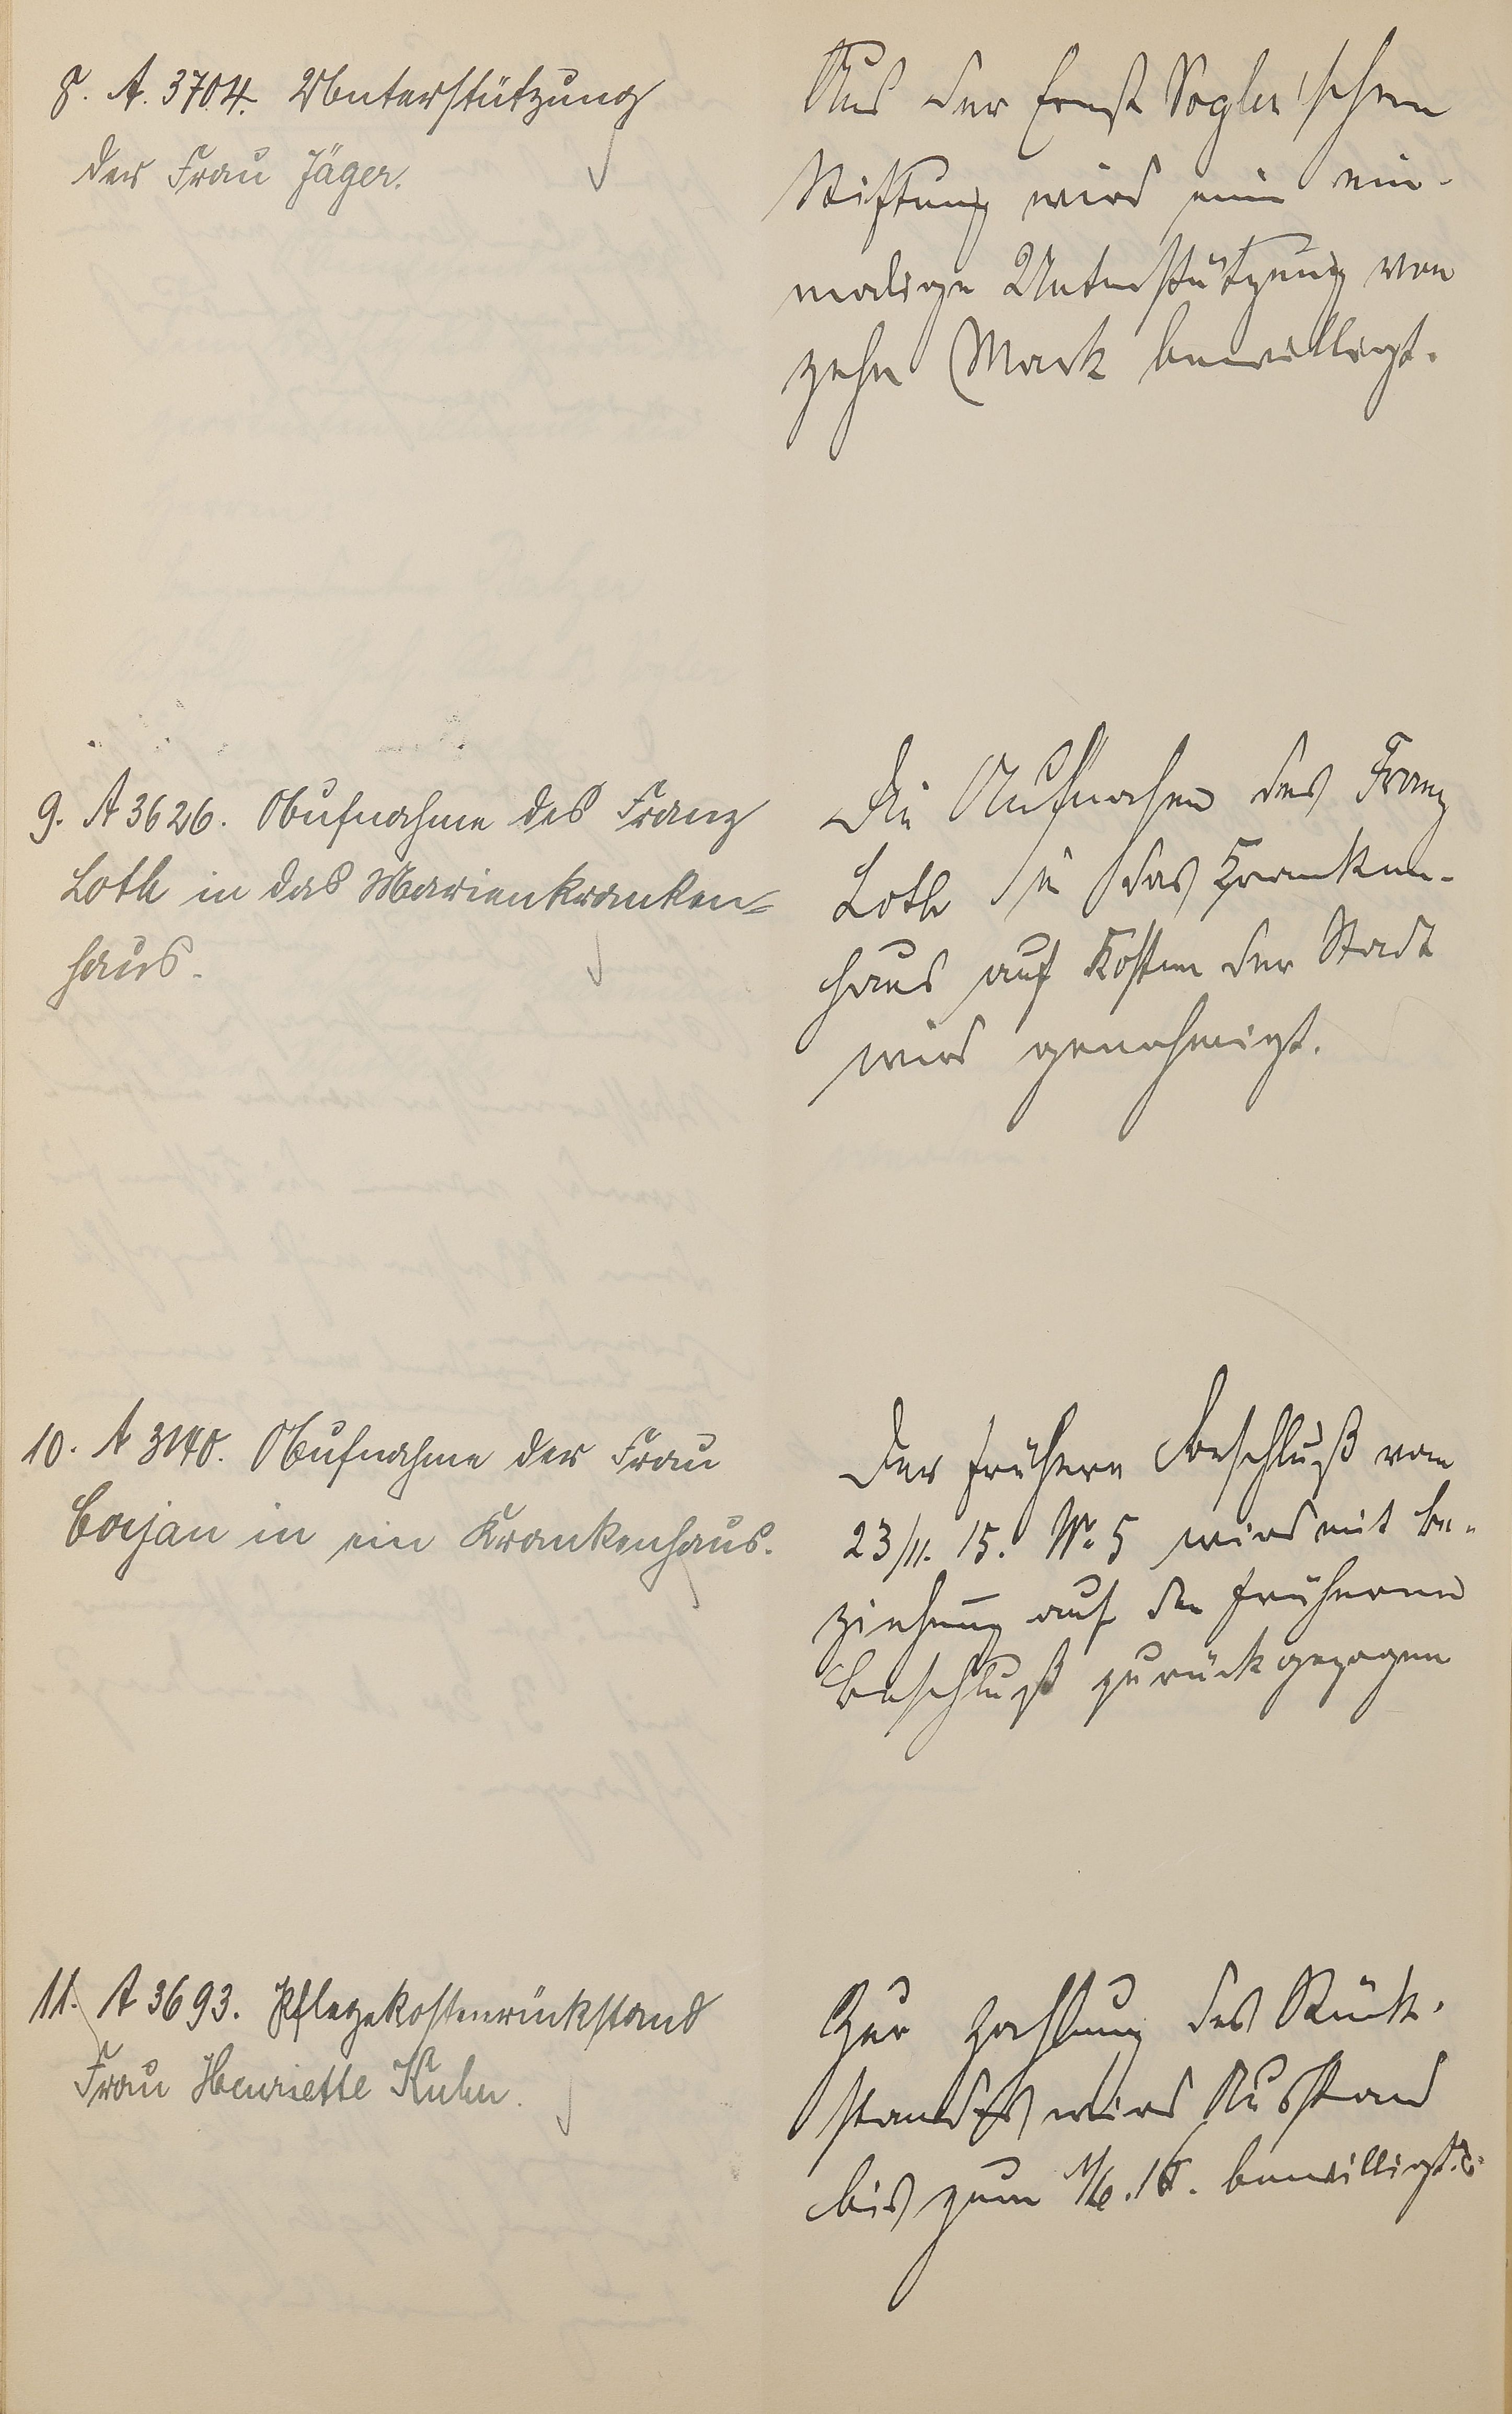 8. A. 3704. Unterstützung
der Frau Jäger.
Aus der Ernst Vogler'schen
Stiftung wird eine ein-
malige Unterstützung von
zehn Mark bewilligt.
9. A 3626. Aufnahme des Franz
Loth in das Marienkranken-
haus.
Die Aufnahme des Franz
Loth in das Kranken-
haus auf Kosten der Stadt
wird genehmigt.
10. A 3140. Aufnahme der Frau
in ein Krankenhaus.
Der frühere Beschluß vom
23/11. 15. No 5 wird mit Be-
ziehung auf den früheren
Beschluß zurückgezogen
11. A 3693. Pflegekostenrückstand
Frau Henriette Kuhn.
Zur Zahlung des Rück-
standes wird Ausstand
bis zum bewilligt.